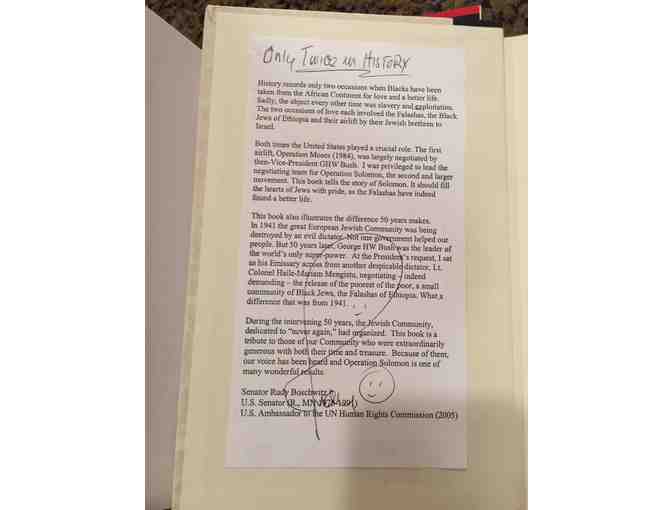 Only Twice in History
History records only two occasions when Blacks have been
taken from the African Continent for love and a better life.
Sadly, the object every other time was slavery and exploitation.
The two occasions of love each involved the Falashas, the Black
Jews of Ethiopia and their airlift by their Jewish brethren to
Israel.
Both times the United States played a crucial role. The first
airlift, Operation Moses (1984), was largely negotiated by
then-Vice-President GHW Bush. I was privileged to lead the
negotiating team for Operation Solomon, the second and larger
movement. This book tells the story of Solomon. It should fill
the hearts of Jews with pride, as the Falashas have indeed
found a better life.
This book also illustrates the difference 50 years makes.
In 1941 the great European Jewish Community was being
destroyed by an evil dictator. Not one government helped our
people. But 50 years later, George HW Bush was the leader of
the world's only super-power. At the President's request, I sat
as his Emissary across from another despicable dictator, Lt.
Colonel Haile-Mariam Mengistu, negotiating – indeed
demanding – the release of the poorest of the poor, a small
community of Black Jews, the Falashas of Ethiopia. What a
difference that was from 1941.
During the intervening 50 years, the Jewish Community,
dedicated to "never again," had organized. This book is a
tribute to those of our Community who were extraordinarily
generous with both their time and treasure. Because of them,
our voice has been heard and Operation Solomon is one of
many wonderful results.
Senator Rudy Boschwitz
U.S. Senator (R., MN
U.S. Ambassador to the UN Human Rights Commission (2005)